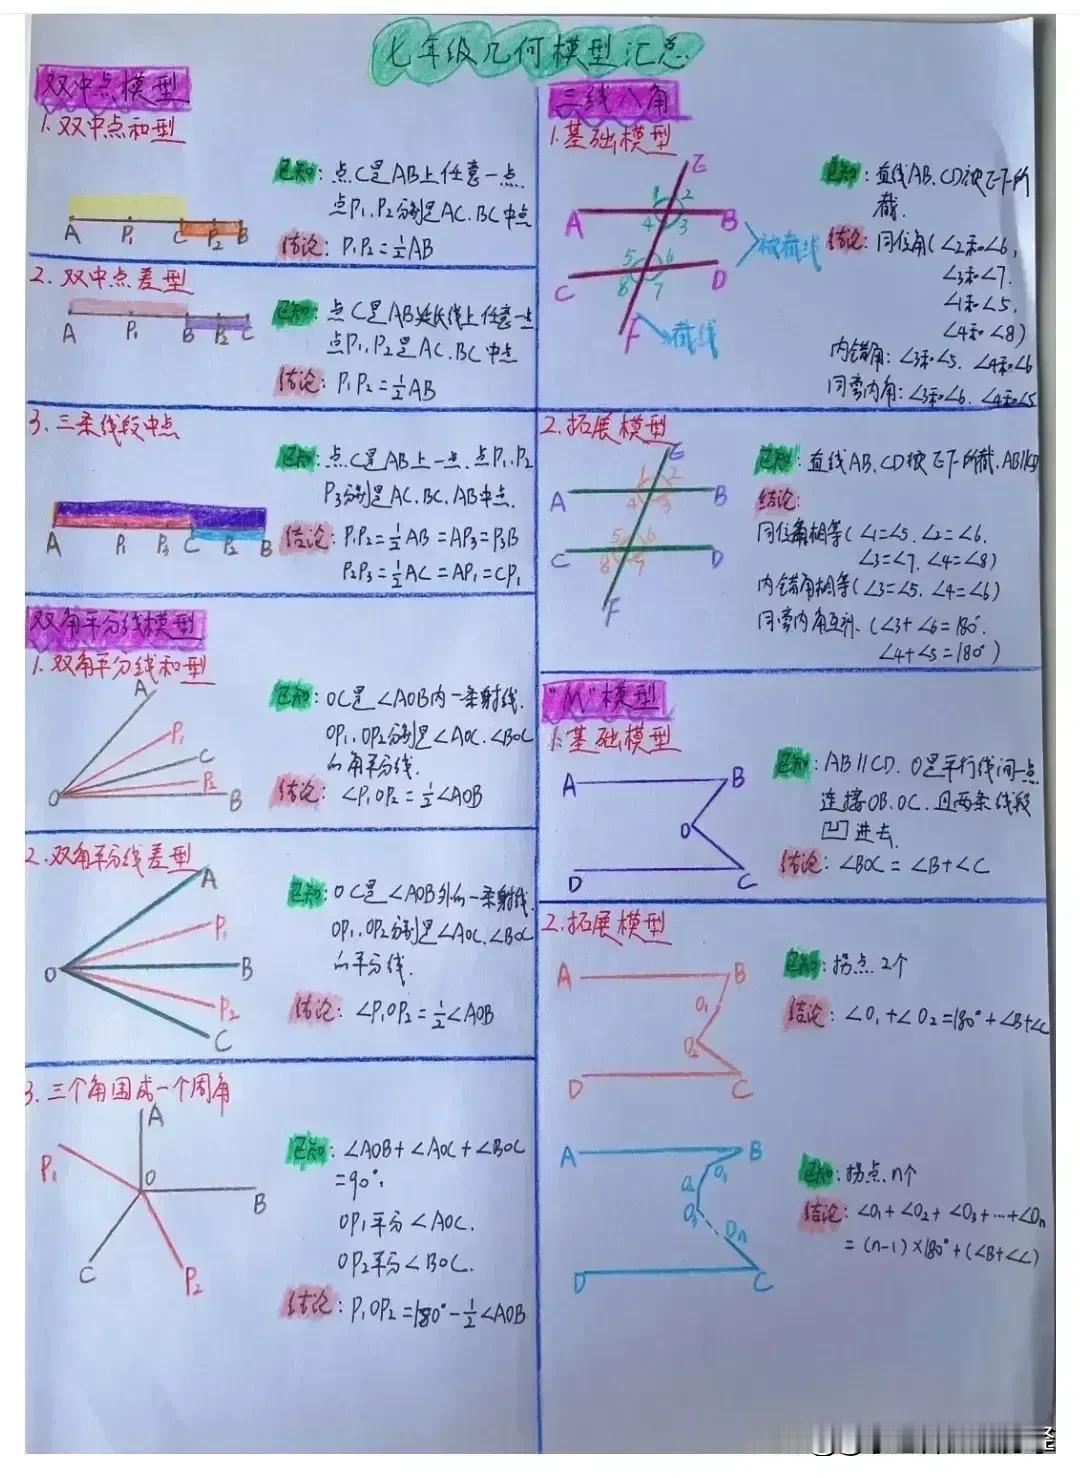 七年级几何模型汇总
双中点模型
1.双中点和型
已知：点C是AB上任意一点
点P₁、P₂分别是AC、BC中点
结论：P₁P₂=½AB
A P₁ C P₂ B
2.双中点差型
已知：点C是AB延长线上任意一点
点P₁、P₂是AC、BC中点
结论：P₁P₂=½AB
A P₁ B P₂ C
3.三条线段中点
已知：点C是AB上一点、点P₁、P₂
P₃分别是AC、BC、AB中点.
结论：P₁P₂=½AB=AP₃=P₃B
P₂P₃=½AC=AP₁=CP₁
A P₁ P₃ C P₂ B
双角平分线模型
1.双角平分线和型
已知：OC是∠AOB内一条射线.
OP₁、OP₂分别是∠AOC、∠BOC
的角平分线.
结论：∠P₁OP₂=½∠AOB
A
P₁
C
P₂
O B
2.双角平分线差型
已知：OC是∠AOB外的一条射线.
OP₁、OP₂分别是∠AOC、∠BOC
的平分线.
结论：∠P₁OP₂=½∠AOB
A
P₁
O B
P₂
C
3.三个角围成一个周角
已知：∠AOB+∠AOC+∠BOC
=90°,
OP₁平分∠AOC.
OP₂平分∠BOC.
结论：P₁OP₂=180°-½∠AOB
A
P₁ O
B
C P₂
三线八角
1.基础模型
已知：直线AB、CD被EF所
截.
结论：同位角(∠2和∠6,
∠3和∠7.
∠1和∠5.
∠4和∠8)
内错角：∠3和∠5、∠4和∠6
同旁内角：∠3和∠6、∠4和∠5
E
1 2
A B
4 3
被截线
5 6
C D
8 7
F
截线
2.拓展模型
已知：直线AB、CD被EF所截、AB∥CD
结论：
同位角相等(∠1=∠5、∠2=∠6.
∠3=∠7、∠4=∠8)
内错角相等(∠3=∠5、∠4=∠6)
同旁内角互补、(∠3+∠6=180°.
∠4+∠5=180°)
E
1 2
A B
4 3
5 6
C D
8 7
F
"M"模型
1.基础模型
已知：AB∥CD、O是平行线间一点
连接OB、OC、且两条线段
凹进去.
结论：∠BOC=∠B+∠C
A B
O
D C
2.拓展模型
已知：拐点2个
结论：∠O₁+∠O₂=180°+∠B+∠C
A B
O₁
O₂
D C
已知：拐点n个
结论：∠O₁+∠O₂+∠O₃+…+∠On
=(n-1)×180°+(∠B+∠C)
A B
O₁
O₂
O₃
On
D C